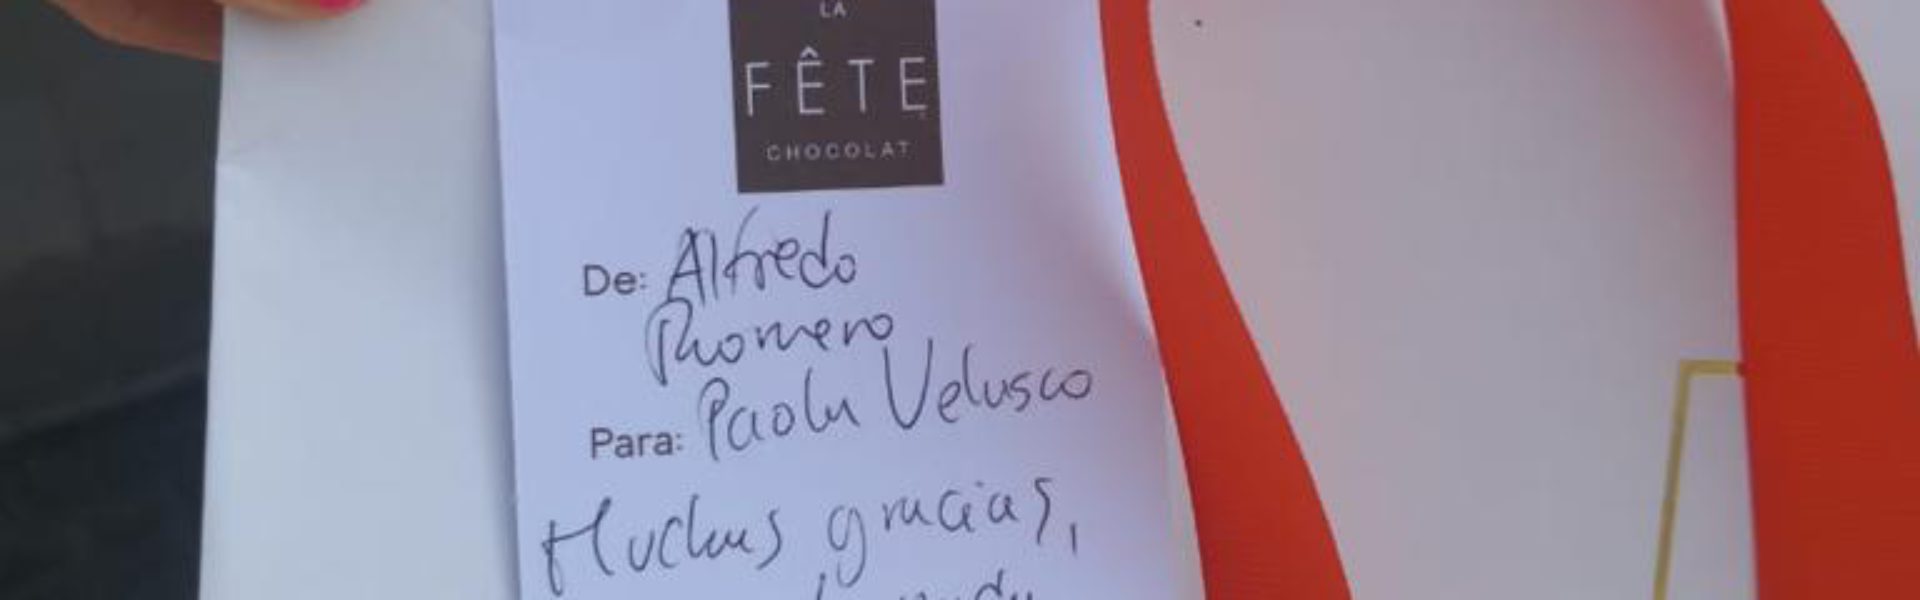 LA
FÊTE
CHOCOLAT
De: Alfredo
Romero
Para: Paola Velasco
Muchas gracias,